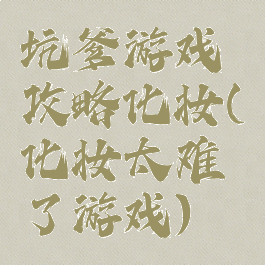 坑爹游戏
攻略化妆(
化妆太难
了游戏)